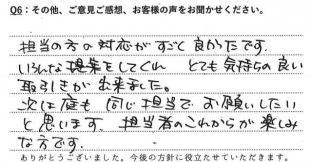 Q6：その他、ご意見ご感想、お客様の声をお聞かせください。
担当の方の対応がすごく良かったです。
いろんな提案をしてくれ とても気持ちの良い
取引きが出来ました。
次は庭も同じ担当でお願いしたい
と思います。担当者のこれからが楽しみ
な方です。
ありがとうございました。今後の方針に役立たせていただきます。